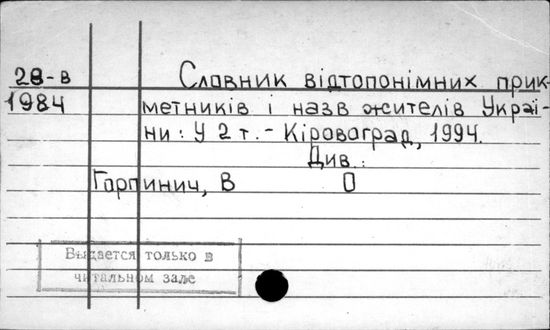 28-в
1984
Словник відтопонімних прик-
метників і назв жителів Украї-
ни: У 2 т. - Кіровоград, 1994.
Див.:
Горпинич, В О
Выдается только в
читальном зале